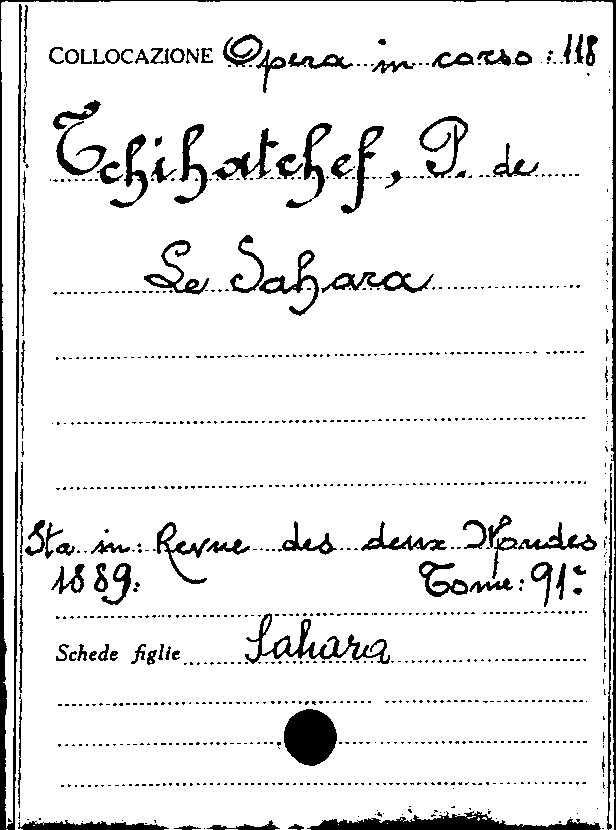 COLLOCAZIONE Opera in corso: 118
Tchihatchef, P. de
Le Sahara
Sta in: Revue des deux Mondes
1889. Tome: 91:
Schede figlie Sahara